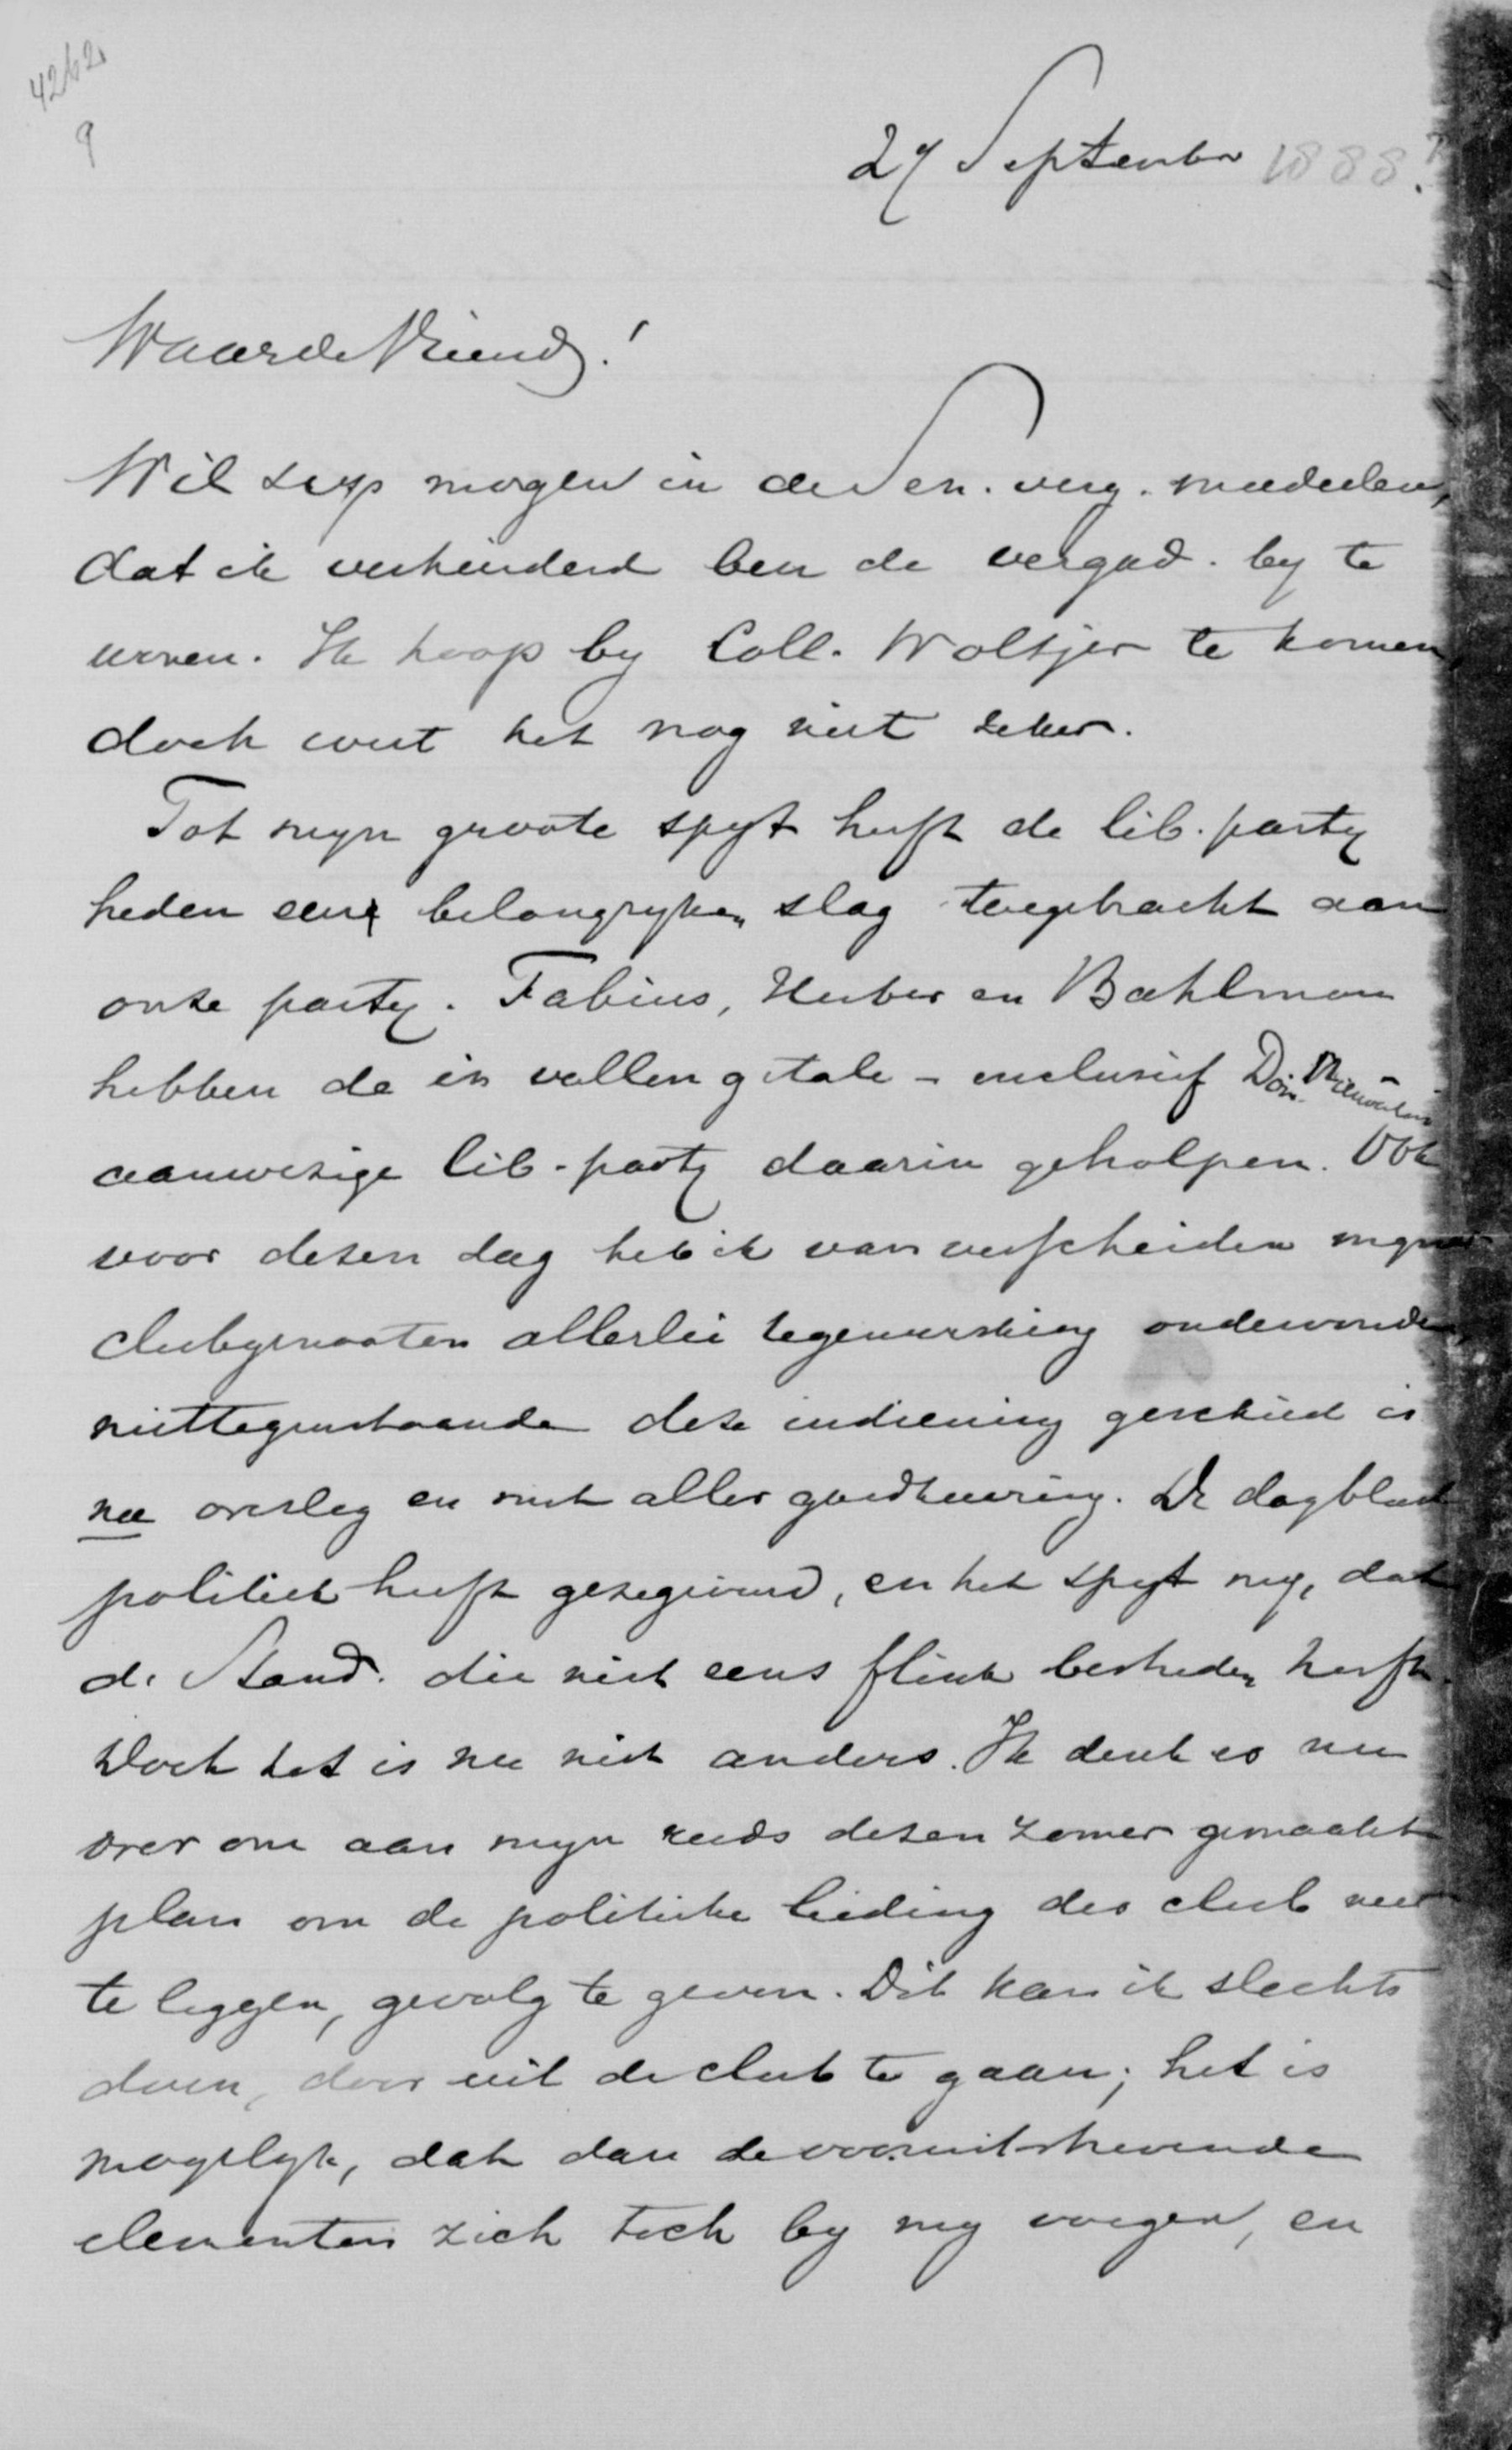 4262
9
27 September 1888.?
Waarde Vriend!
Wil s.v.p. morgen in de Sen. verg. mededeelen,
dat ik verhinderd ben de vergad. by te
wonen. Ik hoop by Coll. Woltjer te komen,
doch weet het nog niet zeker.
Tot myn groote spyt heeft de lib. party
heden een belangryken slag toegebracht aan
onze party. Fabius, Huber en Bahlman
hebben de in vollen getale - inclusief Dom. Nieuwenhuis -
aanwezige lib. party daarin geholpen. Ook
voor dezen dag heb ik van verscheiden myner
clubgenooten allerlei tegenwerking ondervonden,
niettegenstaande deze indiening geschied is
na overleg en met aller goedkeuring. De dagblad
politiek heeft gezegevierd, en het spyt my, dat
de Stand. die niet eens flink bestreden heeft.
Doch het is nu niet anders. Ik denk er nu
over om aan myn reeds dezen zomer gemaakt
plan om de politieke leiding der club neer
te leggen, gevolg te geven. Dit kan ik slechts
doen, door uit de club te gaan; het is
mogelyk, dat dan de vooruitstrevende
elementen zich toch by my voegen, en